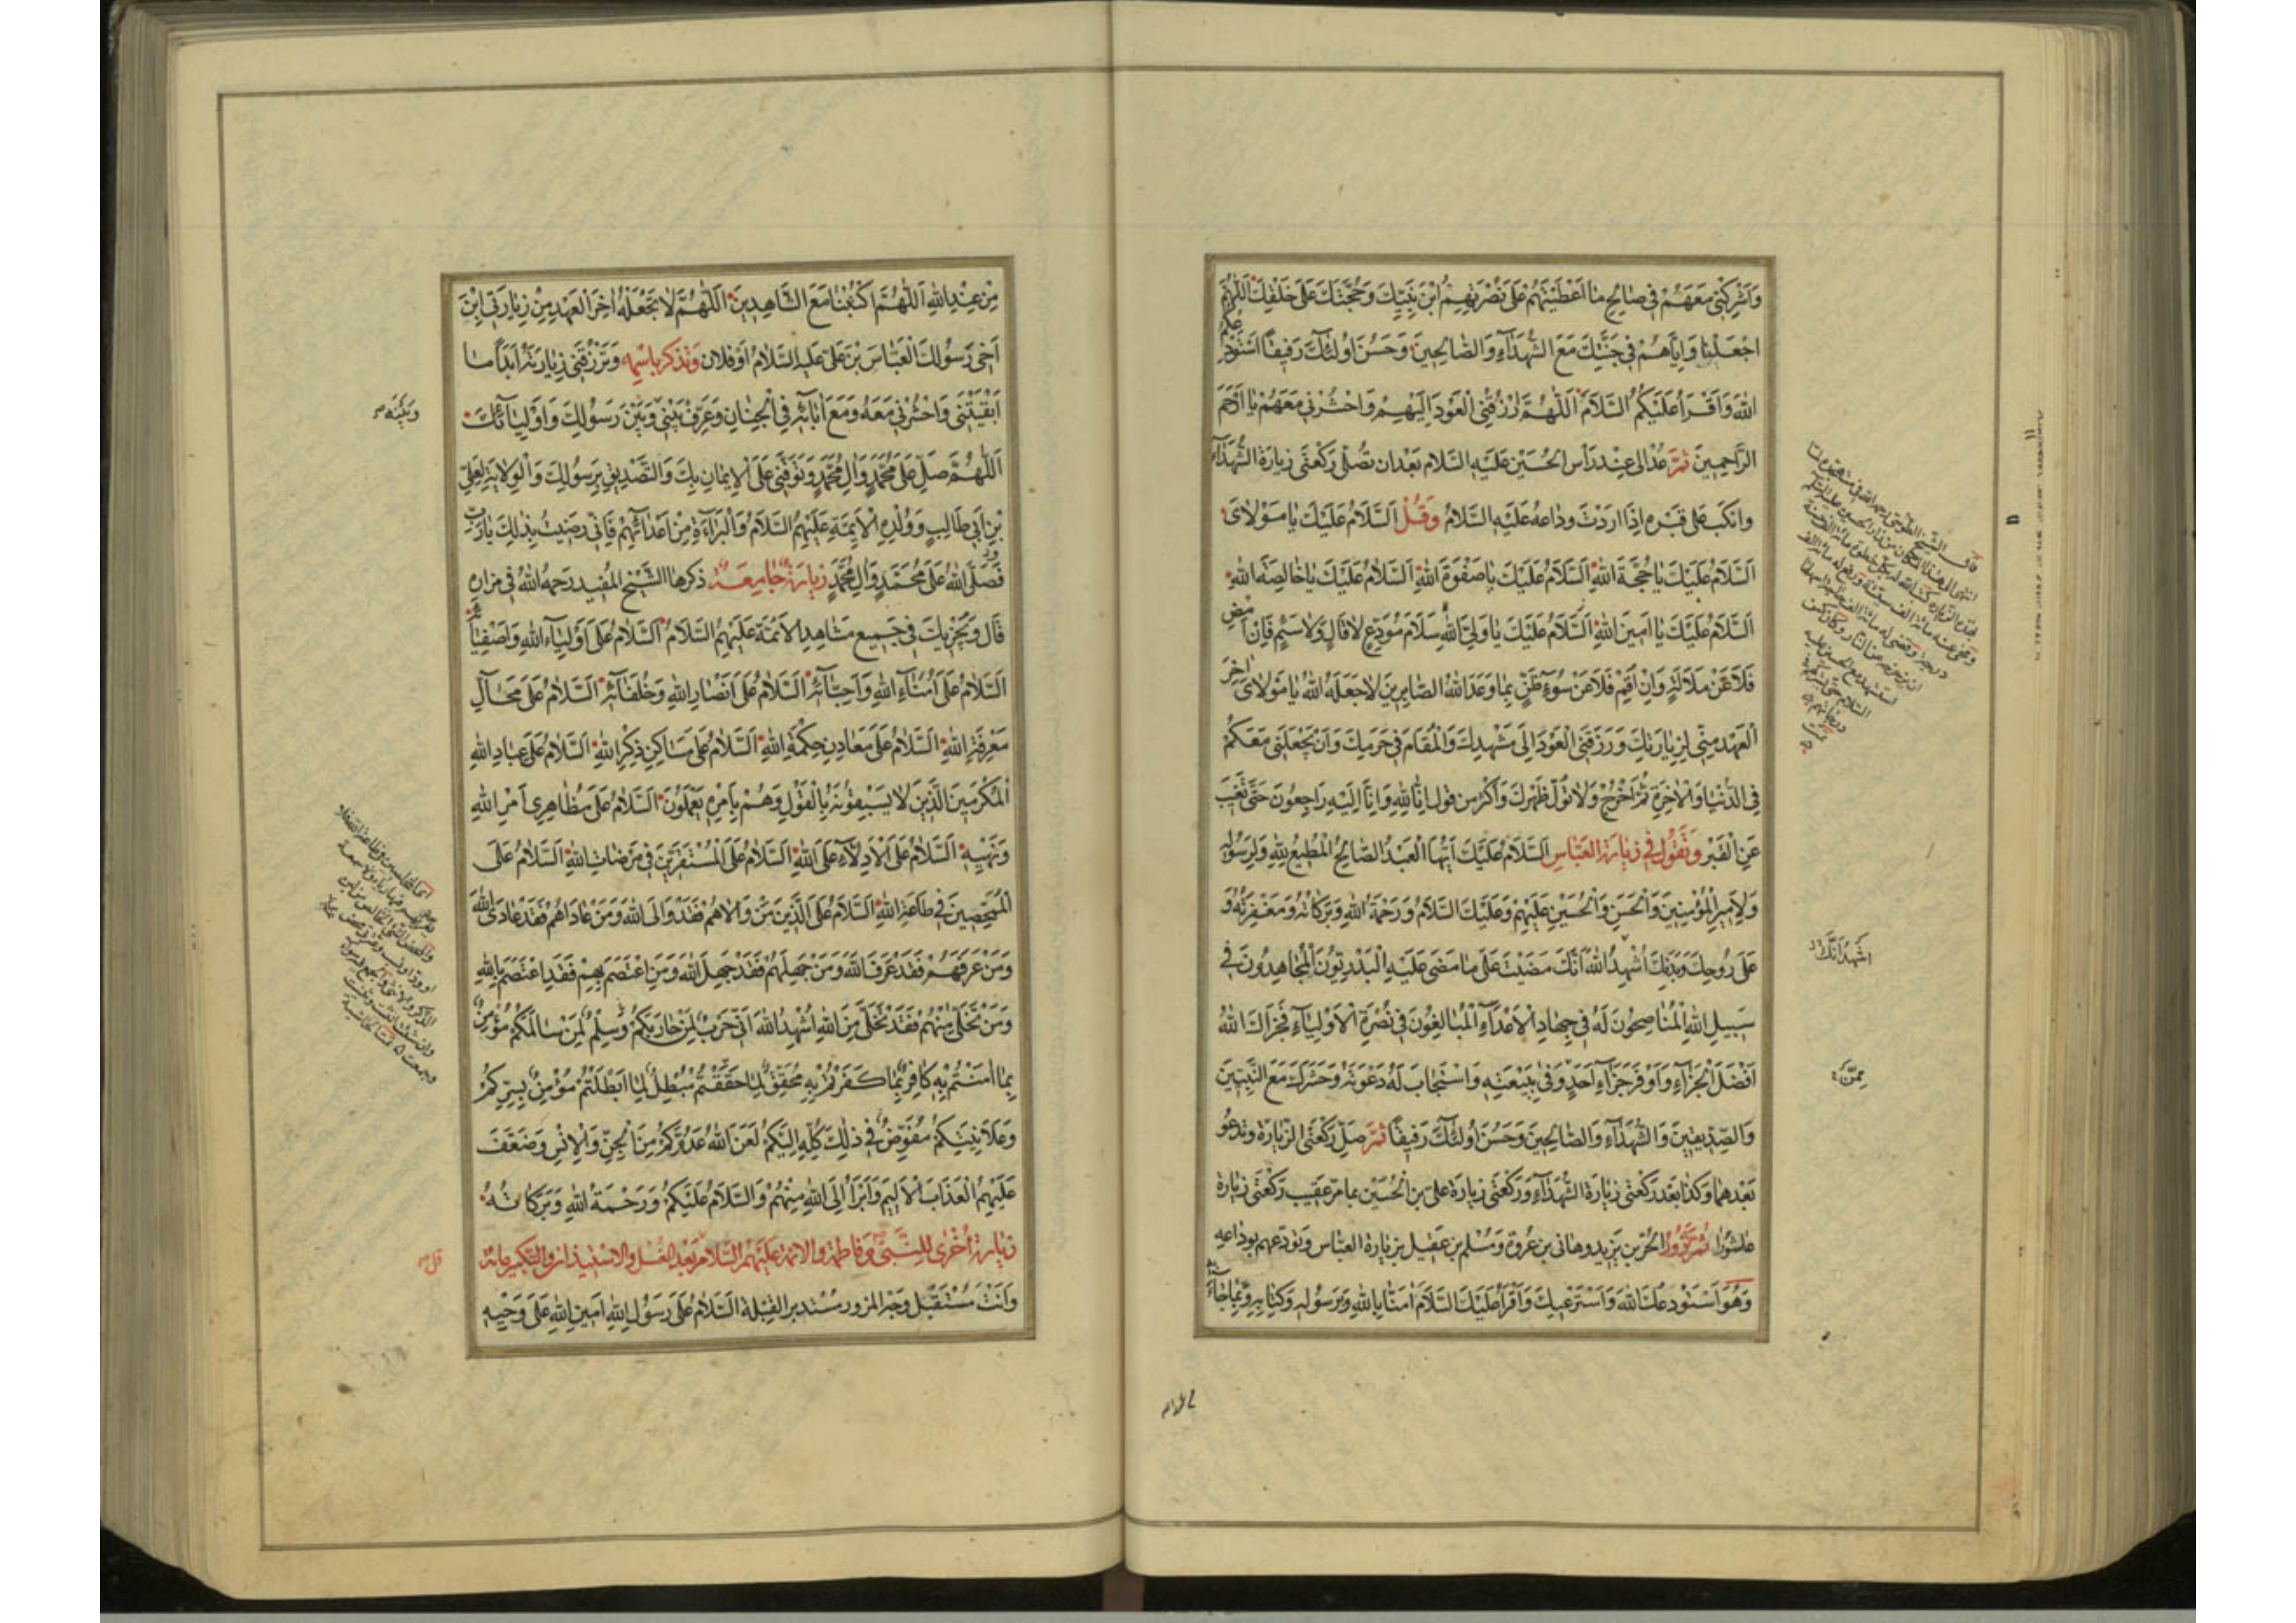 وَاَشْرِكْنى مَعَهُمْ فى صٰالِحِ مٰا اَعْطَيْتَهُمْ عَلىٰ نَصْرِهِمْ ابْنَ نَبِيِّكَ وَحُجَّتَكَ عَلىٰ خَلْقِكَ اَللّٰهُمَّ
اجْعَلْنٰا وَاِيّٰاهُمْ فى جَنَّتِكَ مَعَ الشُّهَدٰآءِ وَالصّٰالِحينَ وَحَسُنَ اُولٰئِكَ رَفيقًا اَسْتَوْدِعُكُمُ
اللهَ وَاَقْرَأُ عَلَيْكُمُ السَّلٰامَ اَللّٰهُمَّ ارْزُقْنِى الْعَوْدَ اِلَيْهِمْ وَاحْشُرْنى مَعَهُمْ يٰا اَرْحَمَ
الرّٰاحِمينَ ثُمَّ عُدْ الى عِنْد رَأس الحُسَيْن عَلَيْهِ السَّلام بَعْد ان تُصَلّى رَكْعَتَى زِيارَة الشُّهَدآءِ
وانكَب عَلى قَبْره اِذا اردْتَ وداعَهُ عَلَيْه السَّلامُ وَقُلْ اَلسَّلٰامُ عَلَيْكَ يٰا مَوْلاىَ
اَلسَّلٰامُ عَلَيْكَ يٰا حُجَّةَ اللهِ اَلسَّلٰامُ عَلَيْكَ يٰا صَفْوَةَ اللهِ اَلسَّلٰامُ عَلَيْكَ يٰا خٰالِصَةَ اللهِ
اَلسَّلٰامُ عَلَيْكَ يٰا اَمينَ اللهِ اَلسَّلٰامُ عَلَيْكَ يٰا وَلِىَّ اللهِ سَلٰامَ مُوَدِّعٍ لٰا قٰالٍ وَلٰا سَئِمٍ فَاِنْ اَمْضِ
فَلٰا عَنْ مَلٰالَةٍ وَاِنْ اُقِمْ فَلٰا عَنْ سُوءِ ظَنٍّ بِمٰا وَعَدَ اللهُ الصّٰابِرينَ لٰا جَعَلَهُ اللهُ يٰا مَوْلٰاىَ اٰخِرَ
الْعَهْدِ مِنّى لِزِيٰارَتِكَ وَرَزَقَنِى الْعَوْدَ اِلىٰ مَشْهَدِكَ وَالْمَقٰامَ فى حَرَمِكَ وَاَنْ يَجْعَلَنى مَعَكُمْ
فِى الدُّنْيٰا وَالْاٰخِرَةِ ثُمَّ اَخْرُجْ وَلا تُوَلِّ ظَهْرَكَ وَاَكْثِرْ مِن قول اِنّٰا لِلّٰهِ وَاِنّٰا اِلَيْهِ رٰاجِعُونَ حَتّى تَغيبَ
عَنِ الْقَبْر وَتَقُولُ فى زِيٰارَةِ الْعَبّٰاسِ اَلسَّلٰامُ عَلَيْكَ اَيُّهَا الْعَبْدُ الصّٰالِحُ الْمُطيعُ لِلّٰهِ وَلِرَسُولِهِ
وَلِاَميرِ الْمُؤْمِنينَ وَالْحَسَنِ وَالْحُسَيْنِ عَلَيْهِمْ وَعَلَيْكَ السَّلٰامُ وَرَحْمَةُ اللهِ وَبَرَكٰاتُهُ وَمَغْفِرَتُهُ وَ
عَلىٰ رُوحِكَ وَبَدَنِكَ اُشْهِدُ اللهَ اَنَّكَ مَضَيْتَ عَلىٰ مٰا مَضىٰ عَلَيْهِ الْبَدْرِيُّونَ الْمُجٰاهِدُونَ فى
سَبيلِ اللهِ الْمُنٰاصِحُونَ لَهُ فى جِهٰادِ الْاَعْدٰآءِ الْمُبٰالِغُونَ فى نُصْرَةِ الْاَوْلِيٰآءِ فَجَزٰاكَ اللهُ
اَفْضَلَ الْجَزٰآءِ وَاَوْفَرَ جَزٰآءِ اَحَدٍ وَفىٰ بِبَيْعَتِهِ وَاسْتَجٰابَ لَهُ دَعْوَتَهُ وَحَشَرَكَ مَعَ النَّبِيّينَ
وَالصِّدّيقينَ وَالشُّهَدٰآءِ وَالصّٰالِحينَ وَحَسُنَ اُولٰئِكَ رَفيقًا ثُمَّ صَلِّ رَكْعَتَى الزّيارَة وَتَدعُو
بَعْدهما وَكَذا بَعْد رَكْعَتَى زِيارَة الشُّهَدآءِ وَرَكْعَتَى زِيارَة عَلىّ بن الْحُسَيْن بما مرّ عَقيب رَكْعَتَى زِيارة
عاشورا ثُمَّ تَزُورُ الحُرّ بن يَزيد وهانى بن عُروة وَمُسْلم بن عَقيل بزيارة العبّاس وتودّعهم بوداعه
وَهُوَ اَسْتَوْدِعُكَ اللهَ وَاَسْتَرْعيكَ وَاَقْرَأُ عَلَيْكَ السَّلٰامَ اٰمَنّٰا بِاللهِ وَبِرَسُولِهِ وَكِتٰابِهِ وَبِمٰا جٰآءَ
اشهد انّك
مِمَّنْ
مِنْ عِنْدِ اللهِ اَللّٰهُمَّ اكْتُبْنٰا مَعَ الشّٰاهِدينَ اَللّٰهُمَّ لٰا تَجْعَلْهُ اٰخِرَ الْعَهْدِ مِنْ زِيٰارَتى اِبْنَ
اَخى رَسُولِكَ الْعَبّٰاسَ بْنَ عَلىّ عَلَيْهِ السَّلٰامُ اَوْ فلان وَتَذكر باسْمِهِ وَتَرْزُقَنى زِيٰارَتَهُ اَبَدًا مٰا
اَبْقَيْتَنى وَاحْشُرْنى مَعَهُ وَمَعَ اٰبٰائِهِ فِى الْجِنٰانِ وَعَرِّفْ بَيْنى وَبَيْنَ رَسُولِكَ وَاَوْلِيٰآئِكَ
اَللّٰهُمَّ صَلِّ عَلىٰ مُحَمَّدٍ وَاٰلِ مُحَمَّدٍ وَتَوَفَّنى عَلَى الْايمٰانِ بِكَ وَالتَّصْديقِ بِرَسُولِكَ وَالْوِلٰايَةِ لِعَلِىِّ
بْنِ اَبى طٰالِبٍ وَوُلْدِهِ الْاَئِمَّةِ عَلَيْهِمُ السَّلٰامُ وَالْبَرٰآءَةِ مِنْ اَعْدٰائِهِمْ فَاِنّى رَضيتُ بِذٰلِكَ يٰا رَبِّ
فَصَلَّى اللهُ عَلىٰ مُحَمَّدٍ وَاٰلِ مُحَمَّدٍ زِيٰارَةٌ جٰامِعَةٌ ذكرها الشَّيْخ المُفيد رَحمهُ اللهُ فى مزاره
قٰالَ وَيُجْزيكَ فى جَميع مَشاهِد الائمّة عَلَيْهِمُ السَّلٰامُ اَلسَّلٰامُ عَلىٰ اَوْلِيٰآءِ اللهِ وَاَصْفِيٰآئِهِ
اَلسَّلٰامُ عَلىٰ اُمَنٰآءِ اللهِ وَاَحِبّٰآئِهِ اَلسَّلٰامُ عَلىٰ اَنْصٰارِ اللهِ وَخُلَفٰآئِهِ اَلسَّلٰامُ عَلىٰ مَحٰآلِّ
مَعْرِفَةِ اللهِ اَلسَّلٰامُ عَلىٰ مَعٰادِنِ حِكْمَةِ اللهِ اَلسَّلٰامُ عَلىٰ مَسٰاكِنِ ذِكْرِ اللهِ اَلسَّلٰامُ عَلىٰ عِبٰادِ اللهِ
الْمُكْرَمينَ الَّذينَ لٰا يَسْبِقُونَهُ بِالْقَوْلِ وَهُمْ بِاَمْرِهِ يَعْمَلُونَ اَلسَّلٰامُ عَلىٰ مُظٰاهِرى اَمْرِ اللهِ
وَنَهْيِهِ اَلسَّلٰامُ عَلَى الْاَدِلّٰآءِ عَلَى اللهِ اَلسَّلٰامُ عَلَى الْمُسْتَقِرّينَ فى مَرْضٰاتِ اللهِ اَلسَّلٰامُ عَلَى
الْمُمَحَّصينَ فى طٰاعَةِ اللهِ اَلسَّلٰامُ عَلَى الَّذينَ مَنْ وٰالٰاهُمْ فَقَدْ وٰالَى اللهَ وَمَنْ عٰادٰاهُمْ فَقَدْ عٰادَى اللهَ
وَمَنْ عَرَفَهُمْ فَقَدْ عَرَفَ اللهَ وَمَنْ جَهِلَهُمْ فَقَدْ جَهِلَ اللهَ وَمَنِ اعْتَصَمَ بِهِمْ فَقَدِ اعْتَصَمَ بِاللهِ
وَمَنْ تَخَلّىٰ مِنْهُمْ فَقَدْ تَخَلّىٰ مِنَ اللهِ اُشْهِدُ اللهَ اَنّى حَرْبٌ لِمَنْ حٰارَبَكُمْ وَسِلْمٌ لِمَنْ سٰالَمَكُمْ مُؤْمِنٌ
بِمٰا اٰمَنْتُمْ بِهِ كٰافِرٌ بِمٰا كَفَرْتُمْ بِهِ مُحَقِّقٌ لِمٰا حَقَّقْتُمْ مُبْطِلٌ لِمٰا اَبْطَلْتُمْ مُؤْمِنٌ بِسِرِّكُمْ
وَعَلٰانِيَتِكُمْ مُفَوِّضٌ فى ذٰلِكَ كُلِّهِ اِلَيْكُمْ لَعَنَ اللهُ عَدُوَّكُمْ مِنَ الْجِنِّ وَالْاِنْسِ وَضَعَّفَ
عَلَيْهِمُ الْعَذٰابَ الْاَليمَ وَاَبْرَأُ اِلَى اللهِ مِنْهُمْ وَالسَّلٰامُ عَلَيْكُمْ وَرَحْمَةُ اللهِ وَبَرَكٰاتُهُ
زيارة اُخْرى للنّبىّ وَفاطمة والائمة عَلَيْهِمُ السَّلام بَعْد الغسْل والاسْتيذان والتّكبير مائة
وَاَنْتَ مُسْتَقْبِل وَجْه المزور مُسْتَدبر القبْلة اَلسَّلٰامُ عَلىٰ رَسُولِ اللهِ اَمينِ اللهِ عَلىٰ وَحْيِهِ
وبينه